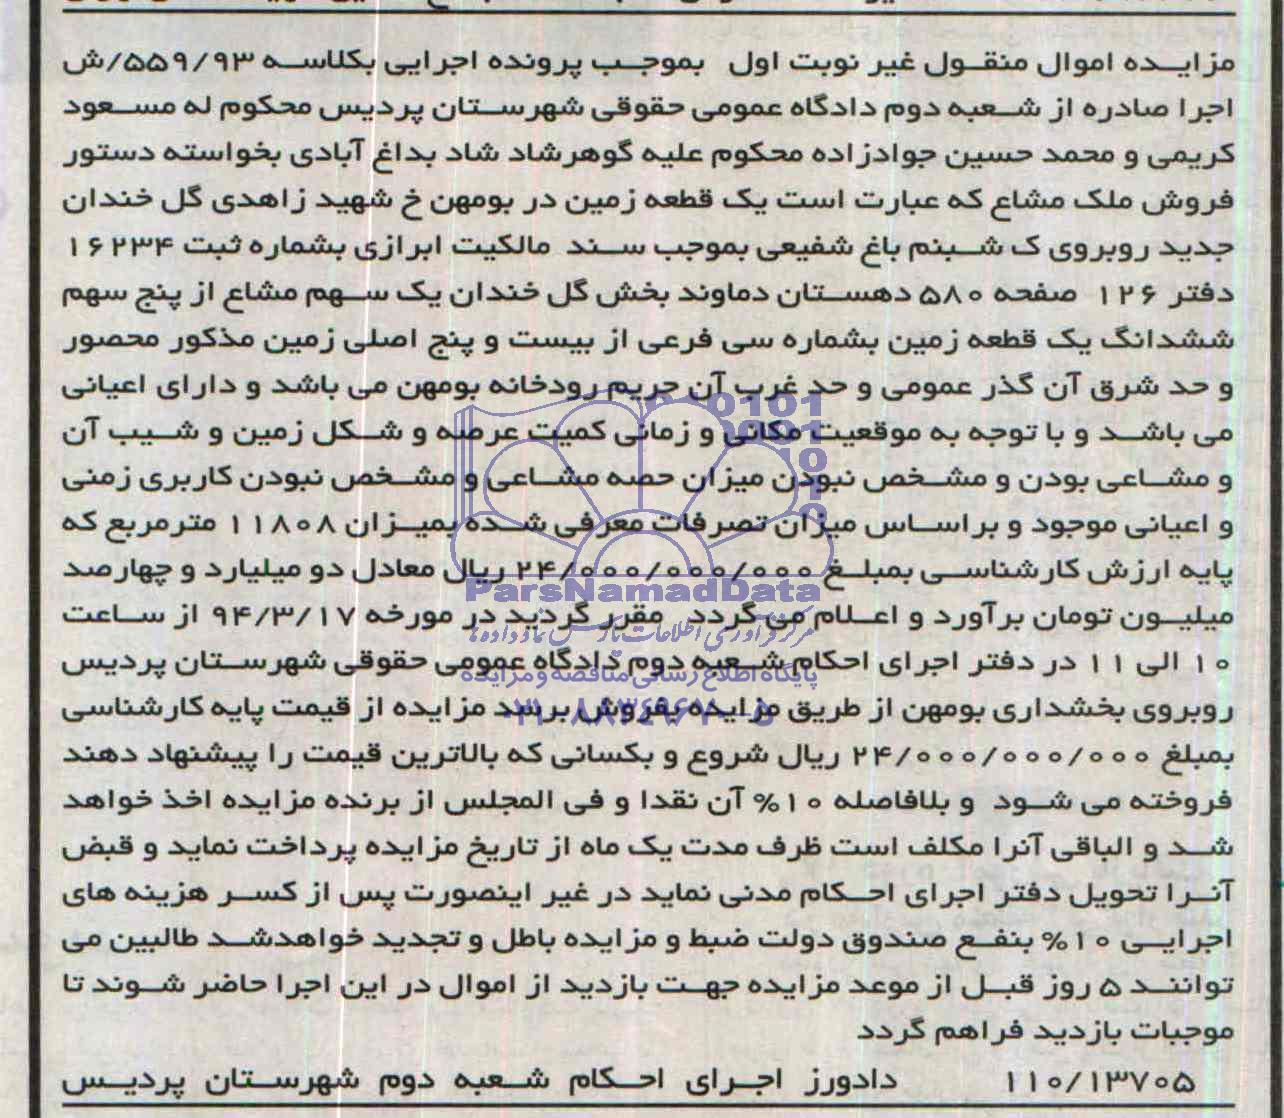 مزایده اموال منقول غیر نوبت اول بموجب پرونده اجرایی بکلاسه ۵۵۹/۹۳/ش
اجرا صادره از شعبه دوم دادگاه عمومی حقوقی شهرستان پردیس محکوم له مسعود
کریمی و محمد حسین جوادزاده محکوم علیه گوهرشاد شاد بداغ آبادی بخواسته دستور
فروش ملک مشاع که عبارت است یک قطعه زمین در بومهن خ شهید زاهدی گل خندان
جدید روبروی ک شبنم باغ شفیعی بموجب سند مالکیت ابرازی بشماره ثبت ۱۶۲۳۴
دفتر ۱۲۶ صفحه ۵۸۰ دهستان دماوند بخش گل خندان یک سهم مشاع از پنج سهم
ششدانگ یک قطعه زمین بشماره سی فرعی از بیست و پنج اصلی زمین مذکور محصور
و حد شرق آن گذر عمومی و حد غرب آن حریم رودخانه بومهن می باشد و دارای اعیانی
می باشد و با توجه به موقعیت مکانی و زمانی کمیت عرصه و شکل زمین و شیب آن
و مشاعی بودن و مشخص نبودن میزان حصه مشاعی و مشخص نبودن کاربری زمنی
و اعیانی موجود و براساس میزان تصرفات معرفی شده بمیزان ۱۱۸۰۸ مترمربع که
پایه ارزش کارشناسی بمبلغ ۲۴/۰۰۰/۰۰۰/۰۰۰ ریال معادل دو میلیارد و چهارصد
میلیون تومان برآورد و اعلام می گردد مقرر گردید در مورخه ۹۴/۳/۱۷ از ساعت
۱۰ الی ۱۱ در دفتر اجرای احکام شعبه دوم دادگاه عمومی حقوقی شهرستان پردیس
روبروی بخشداری بومهن از طریق مزایده بفروش برسد مزایده از قیمت پایه کارشناسی
بمبلغ ۲۴/۰۰۰/۰۰۰/۰۰۰ ریال شروع و بکسانی که بالاترین قیمت را پیشنهاد دهند
فروخته می شود و بلافاصله ۱۰% آن نقدا و فی المجلس از برنده مزایده اخذ خواهد
شد و الباقی آنرا مکلف است ظرف مدت یک ماه از تاریخ مزایده پرداخت نماید و قبض
آنرا تحویل دفتر اجرای احکام مدنی نماید در غیر اینصورت پس از کسر هزینه های
اجرایی ۱۰% بنفع صندوق دولت ضبط و مزایده باطل و تجدید خواهدشد طالبین می
توانند ۵ روز قبل از موعد مزایده جهت بازدید از اموال در این اجرا حاضر شوند تا
موجبات بازدید فراهم گردد
۱۱۰/۱۳۷۰۵ دادورز اجرای احکام شعبه دوم شهرستان پردیس
ParsNamadData
مرکز فرآوری اطلاعات پارس نماد داده ها
پایگاه اطلاع رسانی مناقصه و مزایده